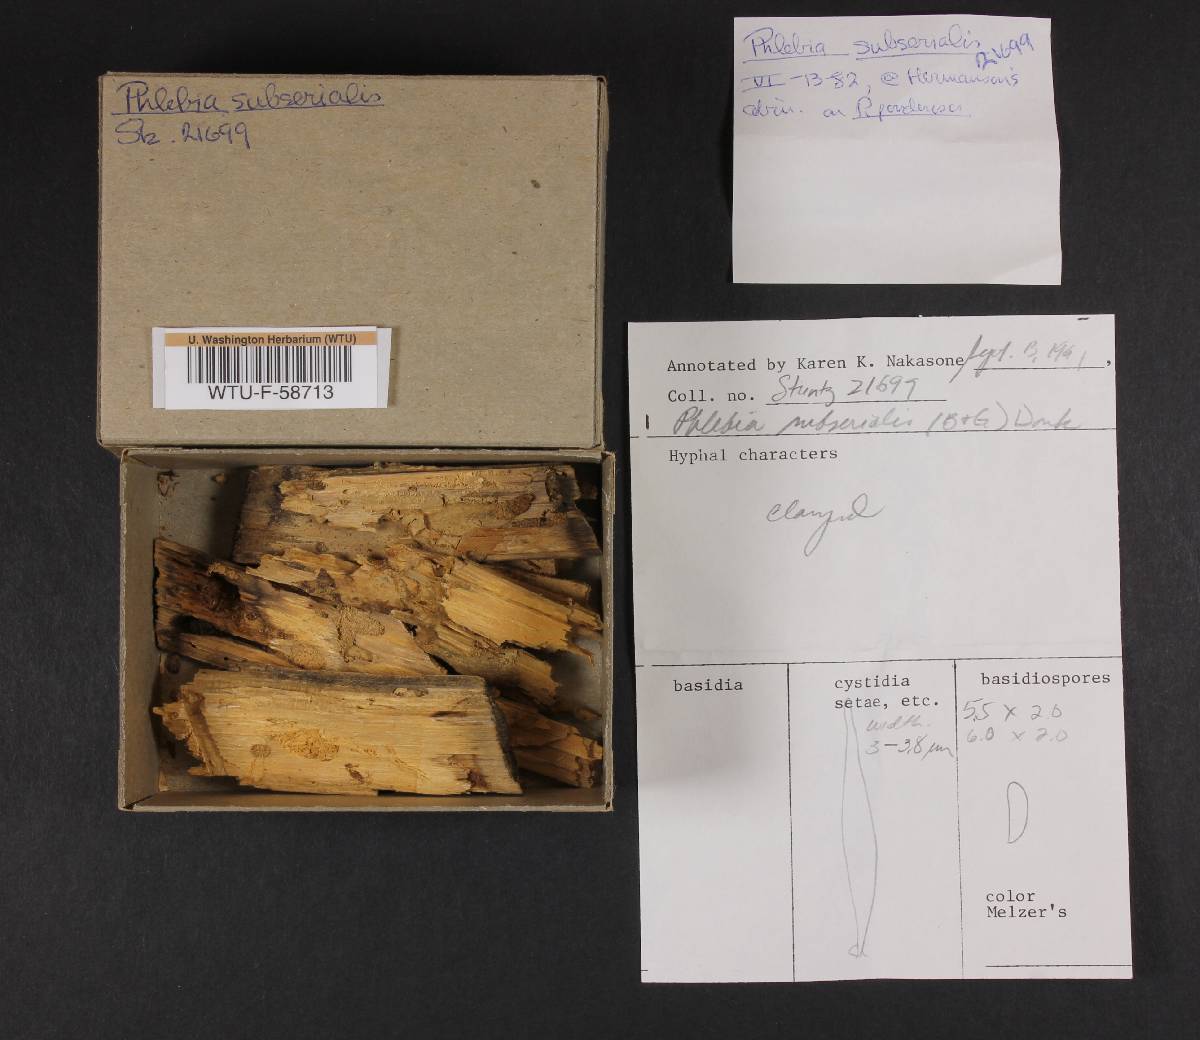 Phlebia subserialis
Stz. 21699
U. Washington Herbarium (WTU)
WTU-F-58713
Phlebia subserialis
21699
VI-13-82, @ Hermanson's
cabin. on P. ponderosa
Annotated by Karen K. Nakasone Sept. 13, 1991,
Coll. no. Stuntz 21699
Phlebia subserialis (B+G) Donk
Hyphal characters
clamped
basidia
cystidia
setae, etc.
width.
3-3.8 µm
basidiospores
5.5 x 2.0
6.0 x 2.0
color
Melzer's